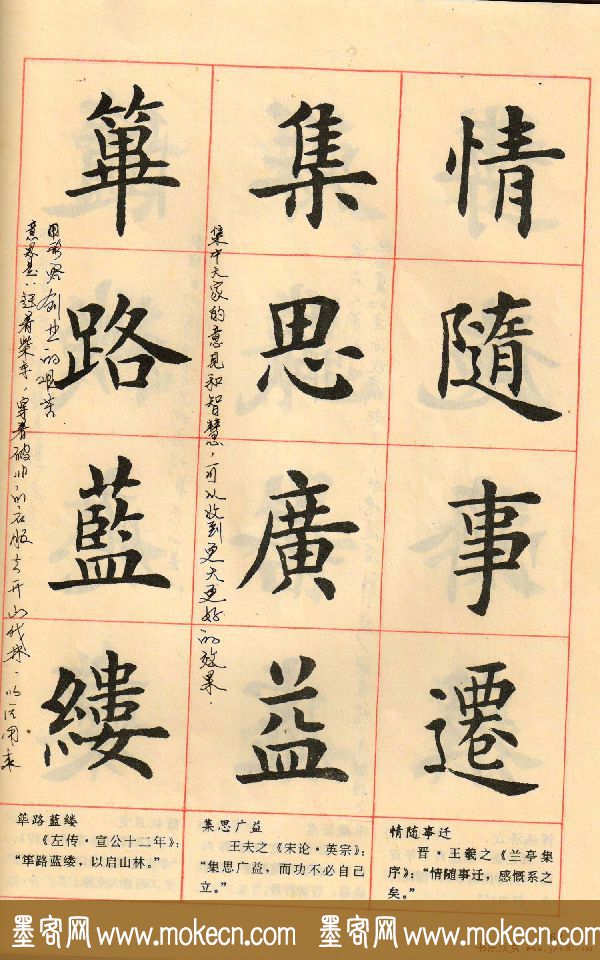 情隨事遷
集思廣益
集中大家的意见和智慧，可以收到更大更好的效果.
篳路藍縷
创业的艰苦
意思是：赶着柴车，穿着破旧的衣服去开山伐林，以后用来
情随事迁
晋·王羲之《兰亭集
序》：“情随事迁，感慨系之
矣。”
集思广益
王夫之《宋论·英宗》：
“集思广益，而功不必自己
立。”
筚路蓝缕
《左传·宣公十二年》：
“筚路蓝缕，以启山林。”
墨客网 www.mokecn.com 墨客网 www.mokecn.com